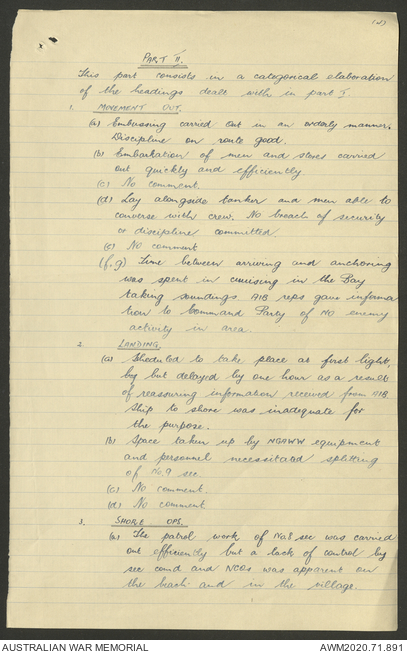 (4)
PART II.
This part consists in a categorical elaboration
of the headings dealt with in part I
1. MOVEMENT OUT.
(a) Embussing carried out in an orderly manner.
Discipline on route good.
(b) Embarkation of men and stores carried
out quickly and efficiently
(c) No comment.
(d) Lay alongside tanker and men able to
converse with crew. No breach of security
or discipline committed.
(e) No comment
(f, g) Time between arriving and anchoring
was spent in cruising in the Bay
taking soundings. AIB reps gave informa
tion to Command Party of no enemy
activity in area.
2. LANDING
(a) Sheduled to take place at first light,
by but delayed by one hour as a result
of reassuring information received from AIB.
Ship to shore was inadequate for
the purpose.
(b) Space taken up by equipment
and personnel necessitated splitting
of No 9 sec
(c) No comment.
(d) No comment
3. SHORE OPS.
(a) The patrol work of No.8 sec was carried
out efficiently but a lack of control by
sec comd and NCOs was apparent on
the beach and in the village.
AUSTRALIAN WAR MEMORIAL
AWM2020.71.891